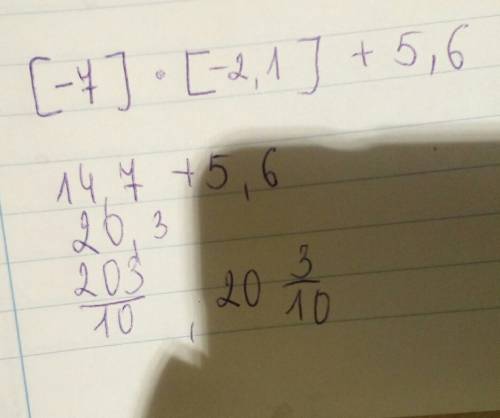 [-7] · [-2,1] + 5,6
14,7 + 5,6
20,3
203/10, 20 3/10